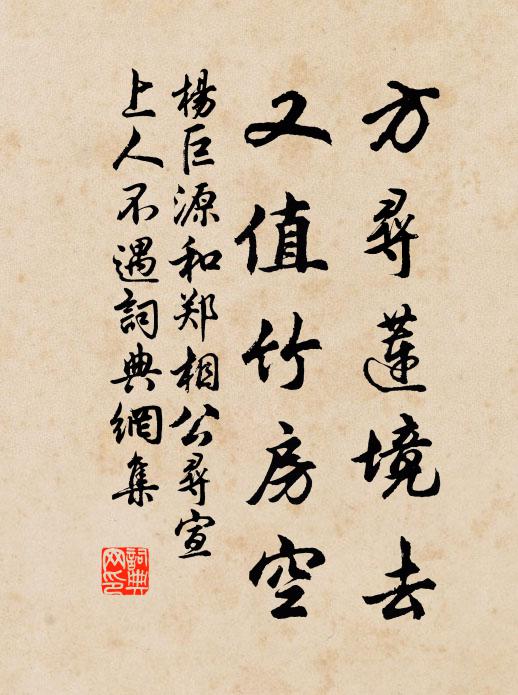 方尋蓮境去
又值竹房空
楊巨源和郑相公尋宣
上人不遇詞典網集
詞典网印